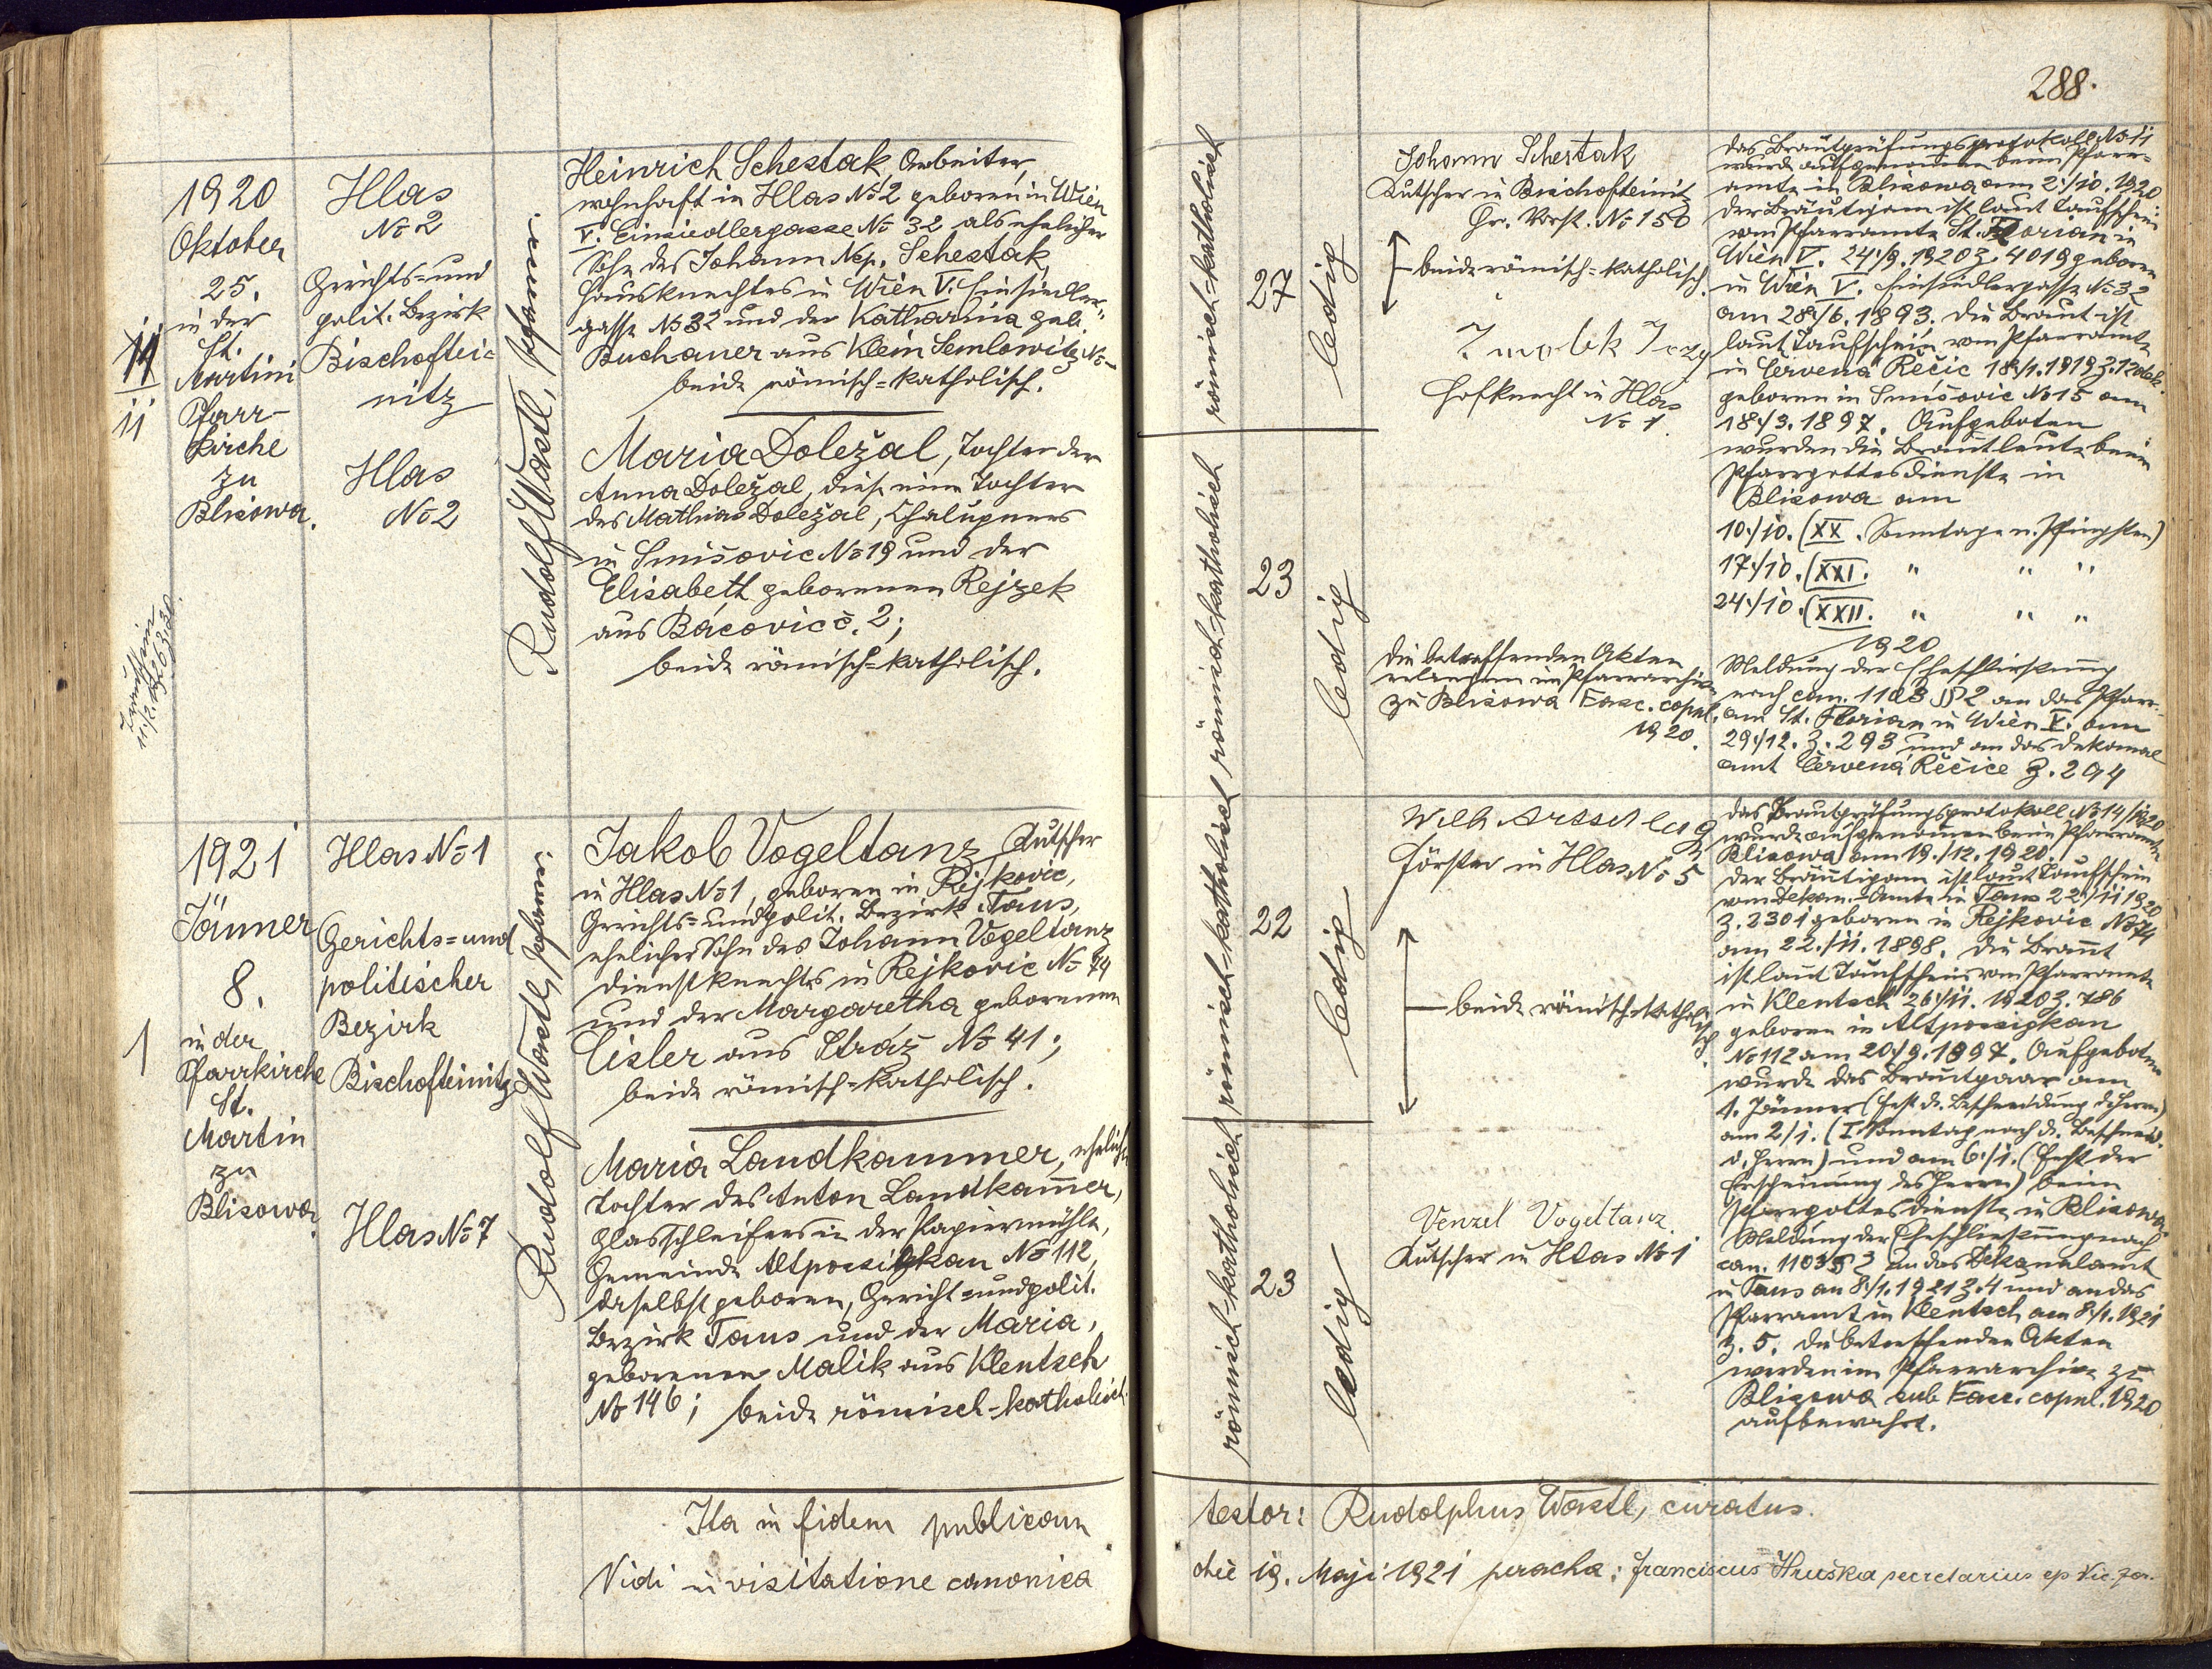 288.
1920
Oktober
25.
in der
St.
Martini
Pfarr-
kirche
zu
Blisowa.
11
Hlas
No 2
Gerichts=und
polit. Bezirk
Bischoftei=
nitz
Hlas
No 2
Rudolf Wastl, Pfarrer.
Heinrich Schestak, Arbeiter,
wohnhaft in Hlas No 2 geboren in Wien
V. Einsiedlergasse No 32 als ehelicher
Sohn des Johann Nep. Schestak,
Hausknechtes in Wien V. Einsiedler-
gasse No 32 und der Katharina geb.
Buchauer aus Klein Semlowitz No-
beide römisch=katholisch.
Maria Doležal, Tochter der
Anna Doležal, diese eine Tochter
des Mathias Doležal, Chalupners
in Smišovic No 19 und der
Elisabeth geborenen Rejzek
aus Bácovic č. 2;
beide römisch=katholisch.
römisch-katholisch
27
ledig
römisch-katholisch
23
ledig
Johann Schestak
Kutscher in Bischofteinitz
Gr. Vorst. No 150
beide römisch=katholisch.
Hofknecht in Hlas
No 1.
Die betreffenden Akten
erliegen im Pfarrarchive
zu Blisowa Fasc. copul.
1920.
Das Brautprüfungsprotokoll No 11
wurde aufgenommen beim Pfarr-
amte in Blisowa am 2./10. 1920.
Der Bräutigam ist laut Taufschein
vom Pfarramte St. Florian in
Wien V. 24./9. 1920 Z. 4019 geboren
in Wien V. Einsiedlergasse No 32
am 28./6. 1893. Die Braut ist
laut Taufschein vom Pfarramte
in Červená Řečic 18./1. 1919 Z. 12
geboren in Smišovic No 15 am
18./3. 1897. Aufgeboten
wurden die Brautleute beim
Pfarrgottesdienste in
Blisowa am
10./10. (XX. Sonntage n. Pfingsten)
17./10. (XXI. " " "
24./10. (XXII. " " "
1920
Meldung der Eheschließung
nach can. 1103 § 2 an das Pfarr-
amt St. Florian in Wien V. am
29./12. Z. 293 und an das Dekanal
amt Červená Řečice Z. 294
1921
Jänner
8.
in der
Pfarrkirche
St.
Martin
zu
Blisowa.
1
Hlas No 1
Gerichts=und
politischer
Bezirk
Bischofteinitz
Hlas No 7
Rudolf Wastl, Pfarrer.
Jakob Vogeltanz, Kutscher
in Hlas No 1, geboren in Rejkovic,
Gerichts=und polit. Bezirk Taus,
ehelicher Sohn des Johann Vogeltanz
Dienstknechtes in Rejkovic No 74
und der Margaretha geborenen
Eisler aus Stráž No 41;
beide römisch=katholisch.
Maria Landkammer, eheliche
Tochter des Anton Landkammer,
Glasschleifers in der Papiermühle,
Gemeinde Altpossigkau No 112,
daselbst geboren, Gericht=und polit.
Bezirk Taus und der Maria,
geborenen Malik aus Klentsch
No 146; beide römisch-katholisch.
römisch-katholisch
22
ledig
römisch-katholisch
23
ledig
Förster in Hlas No 5
beide römisch=katholisch.
Venzel Vogeltanz
Kutscher in Hlas No 1
Das Brautprüfungsprotokoll No 14/1920
wurde aufgenommen beim Pfarramte
Blisowa am 19./12. 1920.
Der Bräutigam ist laut Taufschein
vom Dekan.-Amte in Taus 22./11 1920
Z. 2301 geboren in Rejkovic No 74
am 22./11. 1898. Die Braut
ist laut Taufschein vom Pfarramte
in Klentsch 26./11. 1920 Z. 786
geboren in Altpossigkau
No 112 am 20./9. 1897. Aufgeboten
wurde das Brautpaar am
1. Jänner (Fest d. Beschneidung d. Herrn)
am 2/1. (I. Sonntag nach d. Beschneid.
d. Herrn) und am 6./1. (Fest der
Erscheinung des Herrn) beim
Pfarrgottesdienste in Blisowa.
Meldung der Eheschließung nach
can. 1103 § 2 an das Dekanalamt
in Taus am 8./1. 1921 Z. 4 und an das
Pfarramt in Klentsch am 8./1. 1921
Z. 5. Die betreffenden Akten
werden im Pfarrarchive zu
Blisowa sub Fasc. copul. 1920
aufbewahrt.
Ita in fidem publicam
testor: Rudolphus Wastl, curatus.
Vidi in visitatione canonica
die 19. Maji 1921 peracta: Franciscus Hruška secretarius ep. Vic. for.